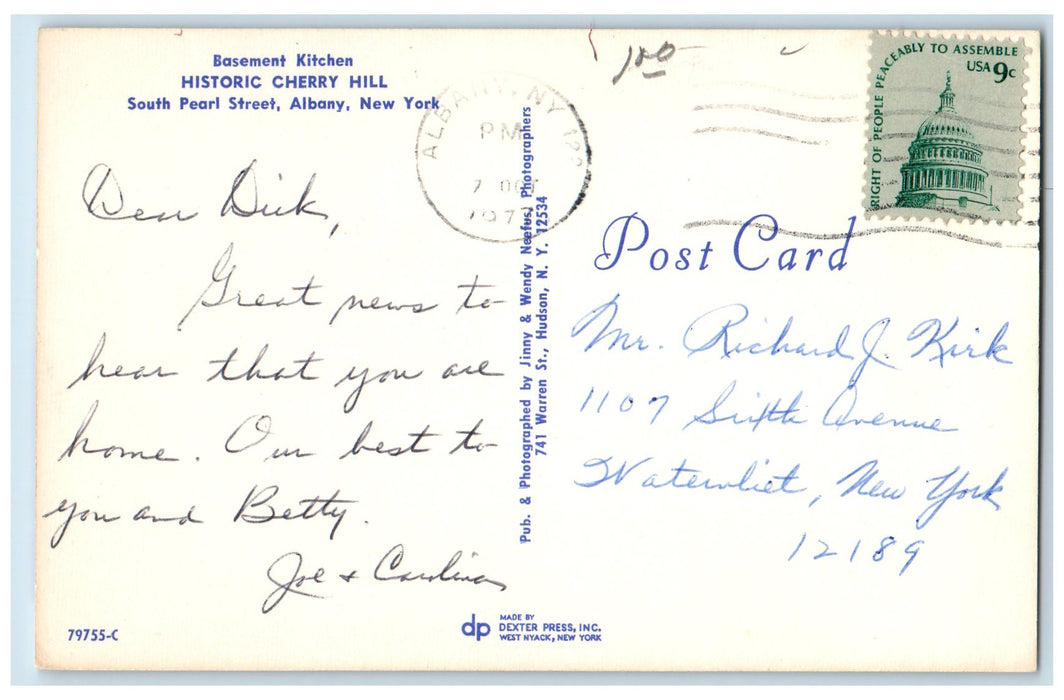 Basement Kitchen
HISTORIC CHERRY HILL
South Pearl Street, Albany, New York
Dear Dick,
Great news to
hear that you are
home. Our best to
you and Betty.
Joe + Carolina
79755-C
ALBANY, NY 122
PM
7 OCT
197
Pub. & Photographed by Jinny & Wendy Neefus, Photographers
741 Warren St., Hudson, N. Y. 12534
dp
MADE BY
DEXTER PRESS, INC.
WEST NYACK, NEW YORK
1.00
RIGHT OF PEOPLE PEACEABLY TO ASSEMBLE
USA 9c
Post Card
Mr. Richard J. Kirk
1107 Sixth Avenue
Watervliet, New York
12189